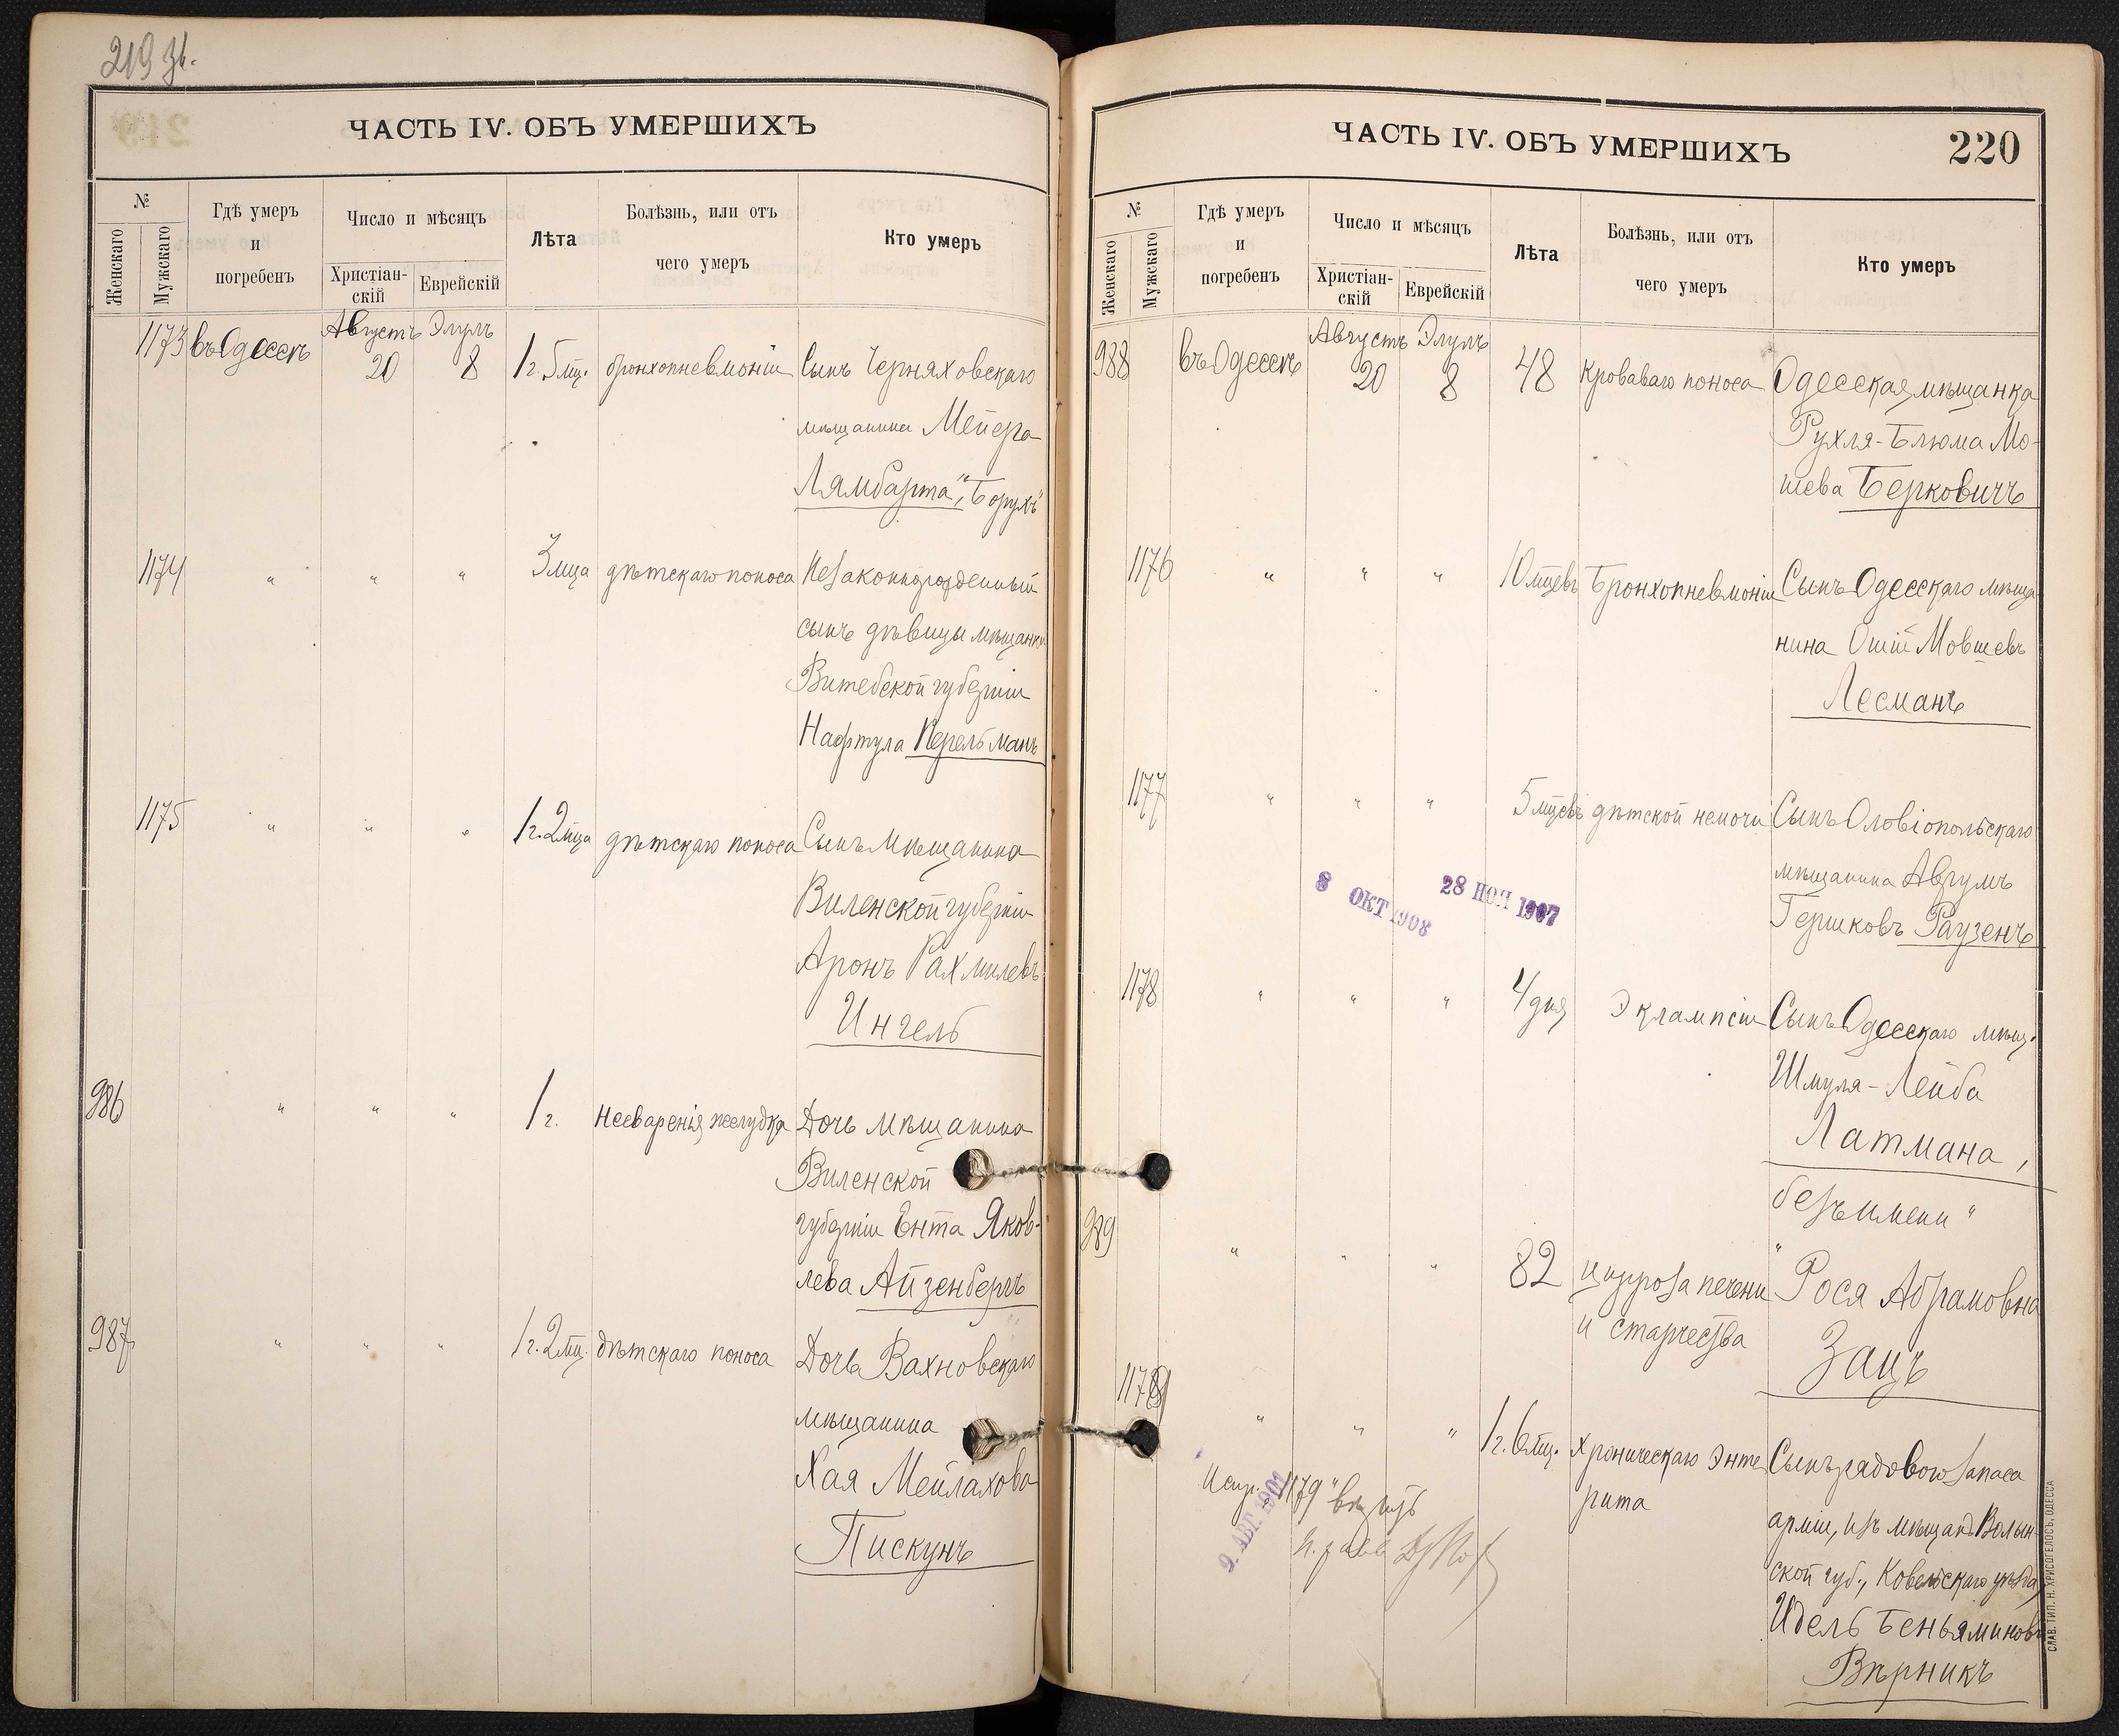 219 зв.
ЧАСТЬ IV. ОБЪ УМЕРШИХЪ
№
Женскаго
Мужскаго
Гдѣ умеръ
и
погребенъ
Число и мѣсяцъ
Христіан-
скій
Еврейскій
Лѣта
Болѣзнь, или отъ
чего умеръ
Кто умеръ
1173 въ Одессѣ Августъ 20 Элулъ 8 1 г. 5 мц. бронхопневмоніи Сынъ Черняховскаго
мѣщанина Мейера
Лямбарта, "Борухъ"
1174 " " " 3 мца дѣтскаго поноса Незаконнорожденный
сынъ дѣвицы мѣщанки
Витебской губерніи
Нафтула Перельманъ
1175 " " " 1 г. 2 мца дѣтскаго поноса Сынъ мѣщанина
Виленской губерніи
Аронъ Рахмилевъ
Ингель
986 " " " 1 г. несваренія желудка Дочь мѣщанина
Виленской
губерніи Ента Яков-
лева Айзенбергъ
987 " " " 1 г. 2 мц. дѣтскаго поноса Дочь Вахновскаго
мѣщанина
Хая Мейлахова
Пискунъ
ЧАСТЬ IV. ОБЪ УМЕРШИХЪ
220
№
Женскаго
Мужскаго
Гдѣ умеръ
и
погребенъ
Число и мѣсяцъ
Христіан-
скій
Еврейскій
Лѣта
Болѣзнь, или отъ
чего умеръ
Кто умеръ
988 въ Одессѣ Августъ 20 Элулъ 8 48 Кроваваго поноса Одесская мѣщанка
Рухля-Блюма Мо-
шева Берковичъ
1176 " " " 10 мцевъ Бронхопневмоніи Сынъ Одесскаго мѣща-
нина Ошій Мовшевъ
Лесманъ
1177 " " " 5 мцевъ дѣтской немочи Сынъ Оловіопольскаго
мѣщанина Аврумъ
Гершковъ Раузенъ
8 ОКТ 1908
28 НОЯ 1907
1178 " " " 4 дня Эклампсіи Сынъ Одесскаго мѣщ.
Шмуля-Лейба
Латмана,
"безъ имени"
989 " " " 82 цирроза печени Рося Абрамовна
и старчества
Зацъ
1179 " " " 1 г. 6 мц. Хроническаго Энте Сынъ рядового запаса
рита
арміи, изъ мѣщанъ Волын-
ской губ., Ковельскаго уѣзда,
Идель Беньяминовъ
Вѣрникъ
Испр. "1179" вѣрить
9. АВГ 1902
СЛАВ. ТИП. Н. ХРИСОГЕЛОСЪ, ОДЕССА